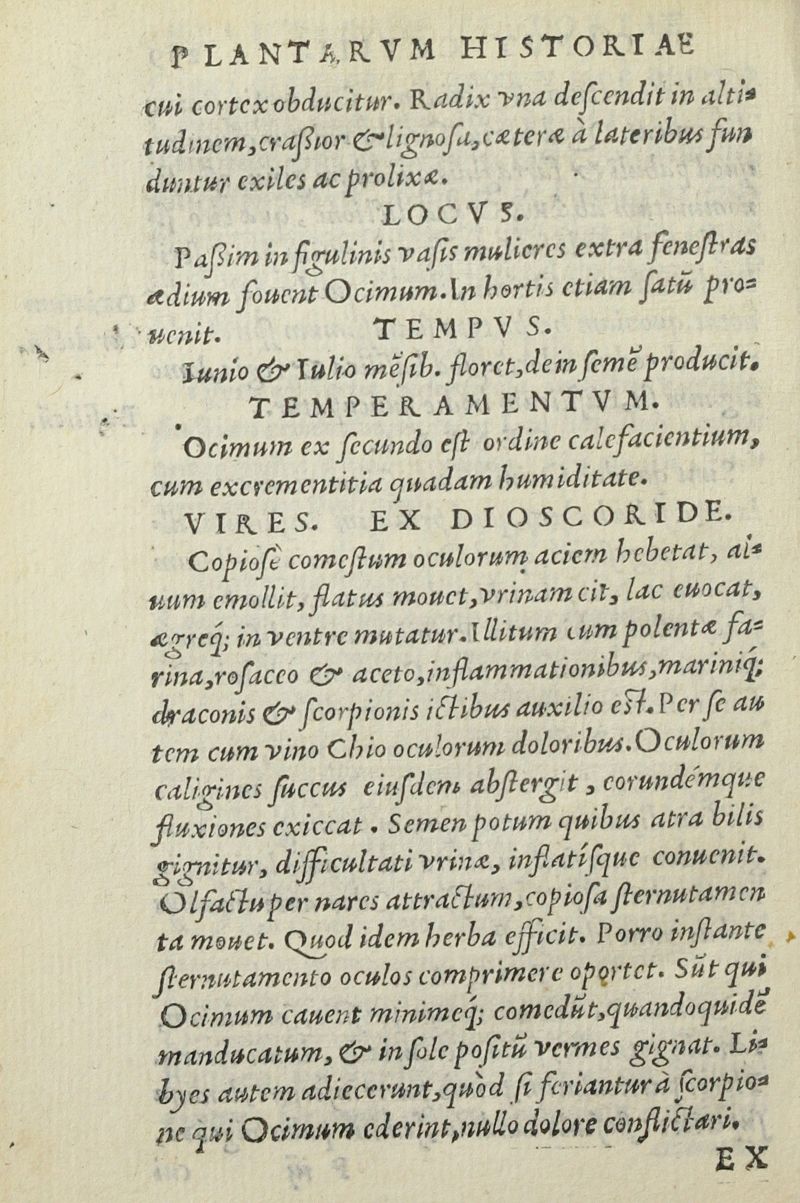 PLANTARVM HISTORIAE
cui cortex obducitur. Radix vna deſcendit in alti-
tudinem, craßior & lignoſa, cæteræ à lateribus fun
duntur exiles ac prolixæ.
LOCVS.
Paßim in figulinis vaſis mulieres extra feneſtras
ædium fouent Ocimum. In hortis etiam ſatū pro-
uenit. TEMPVS.
Iunio & Iulio mēſib. floret, dein ſemē producit.
TEMPERAMENTVM.
Ocimum ex ſecundo eſt ordine calefacientium,
cum excrementitia quadam humiditate.
VIRES. EX DIOSCORIDE.
Copioſè comeſtum oculorum aciem hebetat, al-
uum emollit, flatus mouet, vrinam cit, lac euocat,
ægreq́; in ventre mutatur. Illitum cum polentæ fa-
rina, roſaceo & aceto, inflammationibus, mariniq́;
draconis & ſcorpionis ictibus auxilio eſt. Per ſe au
tem cum vino Chio oculorum doloribus. Oculorum
caligines ſuccus eiuſdem abſtergit, eorundémque
fluxiones exiccat. Semen potum quibus atra bilis
gignitur, difficultati vrinæ, inflatíſque conuenit.
Olfactu per nares attractum, copioſa ſternutamen
ta mouet. Quod idem herba efficit. Porro inſtante
ſternutamento oculos comprimere oportet. Sūt qui
Ocimum cauent minimeq́; comedūt, quandoquidē
manducatum, & in ſole poſitū vermes gignat. Li-
byes autem adiecerunt, quòd ſi feriantur à ſcorpio-
ne qui Ocimum ederint, nullo dolore conflictari.
EX